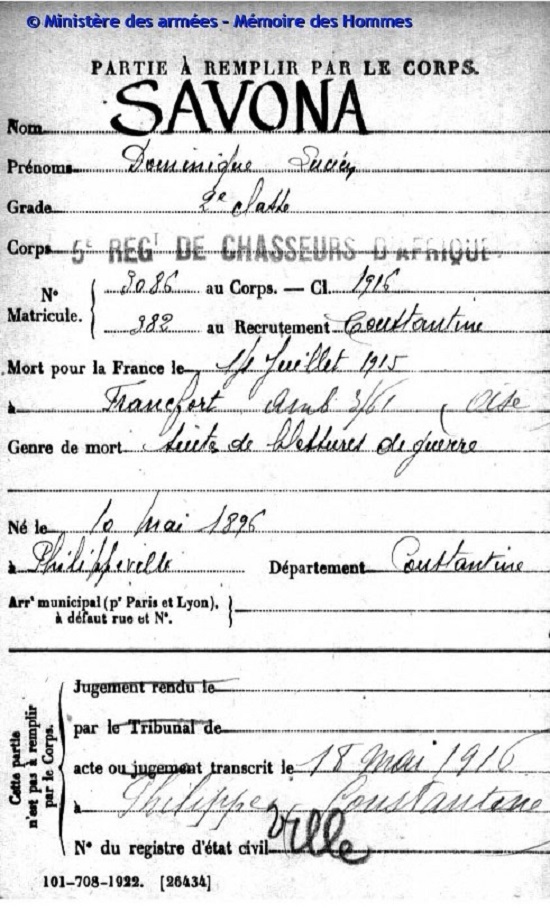 © Ministère des armées - Mémoire des Hommes
PARTIE À REMPLIR PAR LE CORPS.
Nom SAVONA
Prénoms Dominique Lucien
Grade 2e classe
Corps 5e REGT DE CHASSEURS D'AFRIQUE
N° Matricule. { 3086 au Corps. — Cl. 1916
382 au Recrutement Constantine
Mort pour la France le Juillet 1915
à Francfort Amb 3/61 ( Oise
Genre de mort suites de blessures de guerre
Né le 10 mai 1896
à Philippeville Département Constantine
Arrt municipal (pr Paris et Lyon), à défaut rue et N°. }
Cette partie n'est pas à remplir par le Corps. {
Jugement rendu le
par le Tribunal de
acte ou jugement transcrit le 18 mai 1916
à Philippe Constantine
N° du registre d'état civil ville
101-708-1922. [26434]